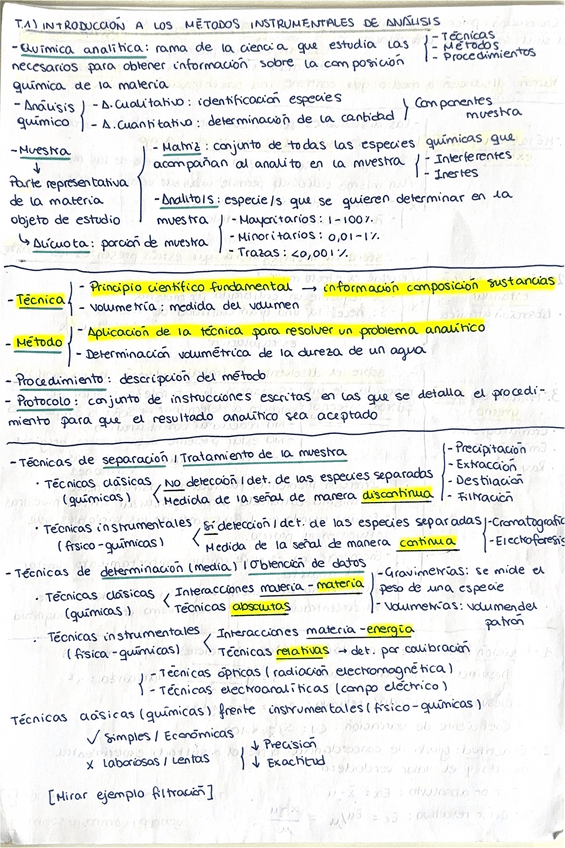 T.1) INTRODUCCIÓN A LOS MÉTODOS INSTRUMENTALES DE ANÁLISIS
- Química analítica: rama de la ciencia, que estudia las
necesarios para obtener información sobre la composición
química de la materia
- Técnicas
- Métodos
- Procedimientos
- Análisis químico
- A. Cualitativo: identificación especies
- A. Cuantitativo: determinación de la cantidad
Componentes muestra
- Muestra
↓
Parte representativa
de la materia
objeto de estudio
↳ Alícuota: porción de muestra
- Matriz: conjunto de todas las especies químicas que
acompañan al analito en la muestra
- Interferentes
- Inertes
- Analito/s: especie/s que se quieren determinar en la
muestra
- Mayoritarios: 1-100%
- Minoritarios: 0,01-1%
- Trazas: <0,001%
- Técnica
- Principio científico fundamental → información composición sustancias
- Volumetría: medida del volumen
- Método
- Aplicación de la técnica para resolver un problema analítico
- Determinación volumétrica de la dureza de un agua
- Procedimiento: descripción del método
- Protocolo: conjunto de instrucciones escritas en las que se detalla el procedi-
miento para que el resultado analítico sea aceptado
- Técnicas de separación / Tratamiento de la muestra
· Técnicas clásicas
(químicas)
No detección / det. de las especies separadas
Medida de la señal de manera discontinua
- Precipitación
- Extracción
- Destilación
- Filtración
· Técnicas instrumentales
(físico-químicas)
Sí detección / det. de las especies separadas
Medida de la señal de manera continua
- Cromatografía
- Electroforesis
- Técnicas de determinación (media) / Obtención de datos
· Técnicas clásicas
(químicas)
Interacciones materia-materia
Técnicas absolutas
- Gravimetrías: se mide el
peso de una especie
- Volumetrías: volumen del
patrón
· Técnicas instrumentales
(física-químicas)
Interacciones materia-energía
Técnicas relativas → det. por calibración
- Técnicas ópticas (radiación electromagnética)
- Técnicas electroanalíticas (campo eléctrico)
Técnicas clásicas (químicas) frente instrumentales (físico-químicas)
✓ Simples / Económicas
x laboriosas / lentas
↓ Precisión
↓ Exactitud
[Mirar ejemplo filtración]